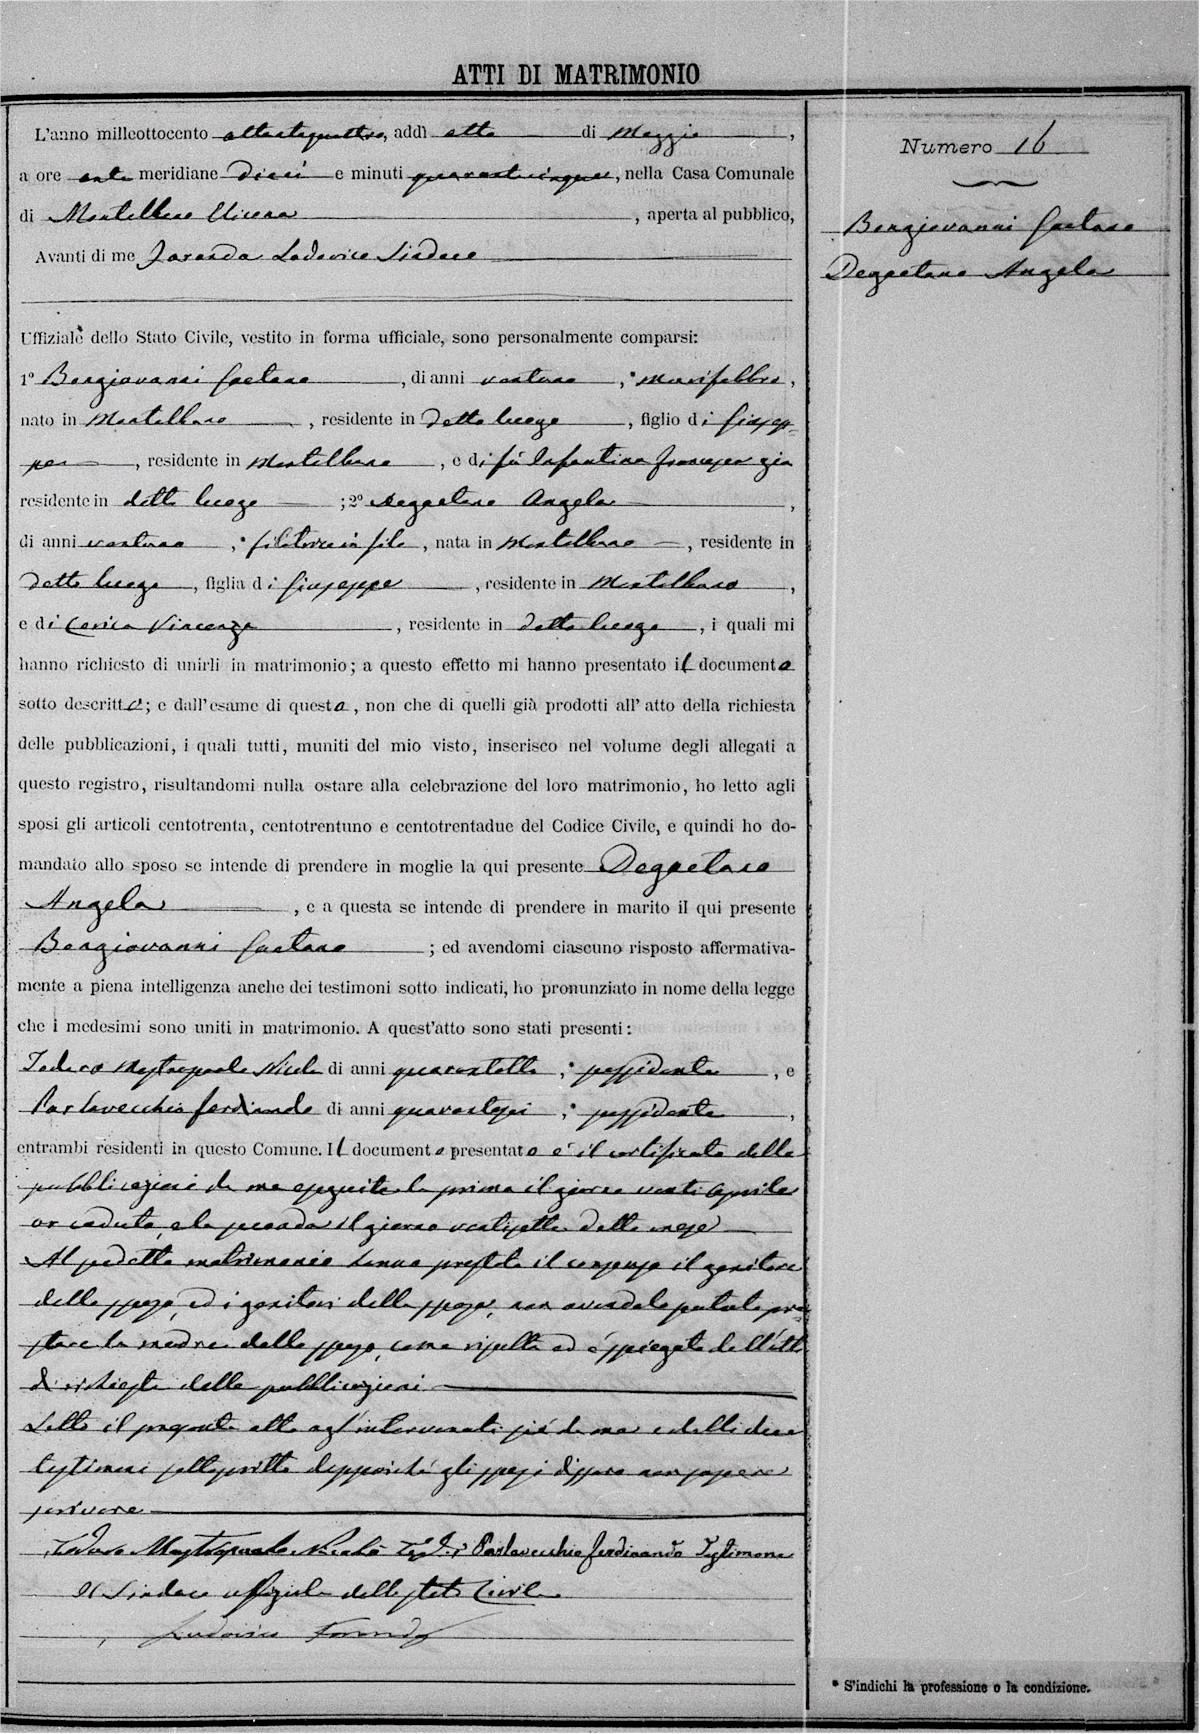 ATTI DI MATRIMONIO
L'anno milleottocento ottantaquattro, addì otto di Maggio,
a ore ante meridiane dieci e minuti quarantacinque, nella Casa Comunale
di Montelluro Ulcera, aperta al pubblico,
Avanti di me Lodovico Sindaco
Uffiziale dello Stato Civile, vestito in forma ufficiale, sono personalmente comparsi:
1º Bongiovanni Gaetano, di anni ventuno, * murifabbro,
nato in, residente in detto luogo, figlio di Giusep=
pe, residente in, e di fù Infantino Francesca già
residente in detto luogo; 2º Degaetano Angela,
di anni ventuno, * filatrice in filo, nata in, residente in
detto luogo, figlia di Giuseppe, residente in,
e di Vincenza, residente in detto luogo, i quali mi
hanno richiesto di unirli in matrimonio; a questo effetto mi hanno presentato il documento
sotto descritto; e dall'esame di questo, non che di quelli già prodotti all'atto della richiesta
delle pubblicazioni, i quali tutti, muniti del mio visto, inserisco nel volume degli allegati a
questo registro, risultandomi nulla ostare alla celebrazione del loro matrimonio, ho letto agli
sposi gli articoli centotrenta, centotrentuno e centotrentadue del Codice Civile, e quindi ho do-
mandato allo sposo se intende di prendere in moglie la qui presente Degaetano
Angela, e a questa se intende di prendere in marito il qui presente
Bongiovanni Gaetano; ed avendomi ciascuno risposto affermativa-
mente a piena intelligenza anche dei testimoni sotto indicati, ho pronunziato in nome della legge
che i medesimi sono uniti in matrimonio. A quest'atto sono stati presenti:
Todaro Mastropaolo Nicolò di anni quarantotto, * possidente, e
Parlavecchio Ferdinando di anni quarantasei, * possidente,
entrambi residenti in questo Comune. Il documento presentato è il certificato delle
pubblicazioni da me eseguite la prima il giorno venti Aprile
or caduto, e la seconda il giorno ventisette detto mese
Al sudetto matrimonio hanno prestato il consenso il genitore
dello sposo, ed i genitori della sposa, non avendolo potuto pre
stare la madre dello sposo, come risulta ed è spiegato dall'atto
di richiesta delle pubblicazioni
Letto il presente atto agl'intervenuti si è da me e dalli due
testimoni sottoscritto dapoiché gli sposi dissero non sapere
scrivere
Todaro Mastropaolo Nicolò Test. Parlavecchio Ferdinando Testimone
Il Sindaco uffiziale dello Stato Civile
Ludovico
Numero 16
Bongiovanni Gaetano
Degaetano Angela
* S'indichi la professione o la condizione.